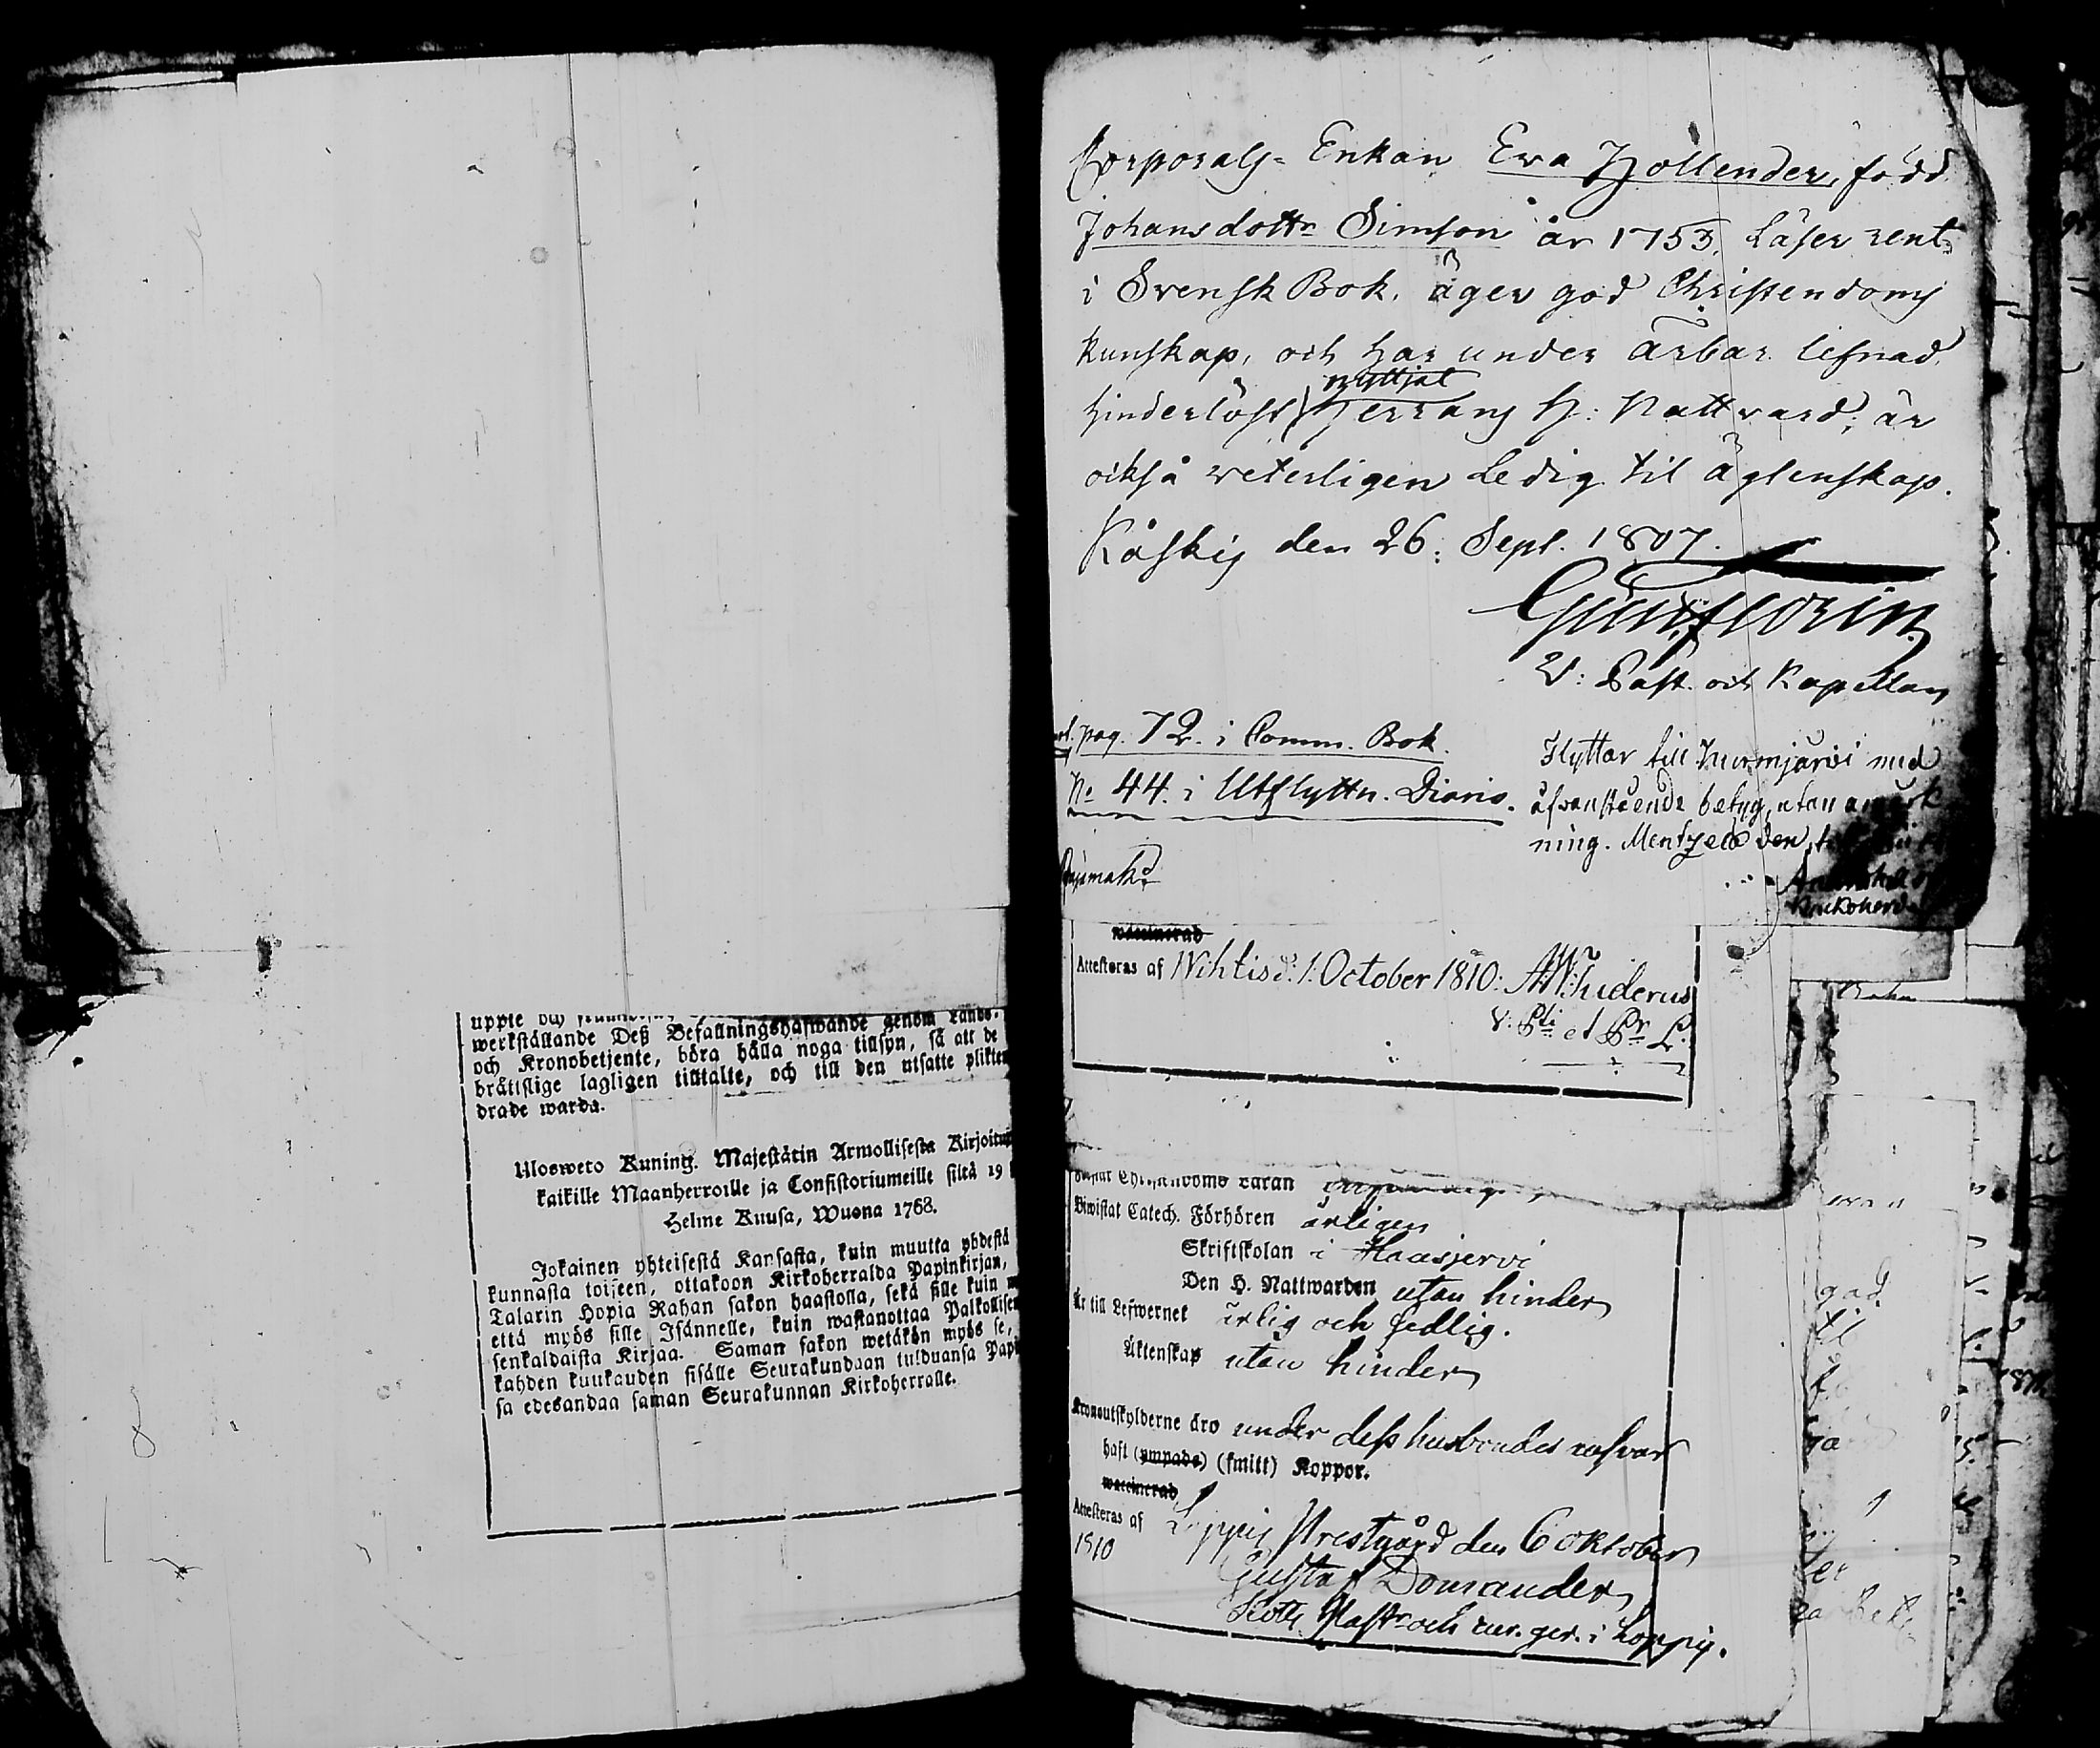 uppte och
werkställande Deß Befallningshafwande genom Lands-
och Kronobetjente, böra hålla noga tillsyn, så att de
brättslige lagligen tilltalte, och till den utsatte plikten
drade warda.
Ulosweto Kuning. Majestätin Armollisesta Kirjoitu
kaikille Maanherroille ja Consistoriumeille siltä 19
Helme Kuusa, Wuona 1768.
Jokainen yhteisestä Kansasta, kuin muutta yhdestä
kunnasta toiseen, ottakoon Kirkoherralda Papinkirjan,
Talarin Hopia Rahan sakon haastolla, sekä sille kuin
että myös sille Isännelle, kuin wastanottaa Palkollisen
senkaldaista Kirjaa. Saman sakon wetäkön myös se,
kahden kuukauden sisälle Seurakundaan tulduansa Papi
sa edesandaa saman Seurakunnan Kirkoherralle.
Corporals- Enkan Eva Hollender, född
Johansdottr Simson år 1753. Läser rent
i Svensk Bok, äger god Christendoms
kunskap, och har under ärbar lefnad
nyttjat
hinderlöst Herrans H: Nattvard; är
också veterligen Ledig til ägtenskap.
Kåskis den 26: Sept. 1807.
V: Past. och Kapellan
pag. 72. i Comm. Bok.
No 44. i Utflyttn. Diario.
Flyttar till Nurmijärvi med
åfvanstående betyg, utan anmärk
ning. Mentzelä den
waccinerad
Attesteras af Wihtis d: 1. October 1810:
V: Pti et Pr L:
Christendoms Läran
Biwistat Catech. Förhören årligen
Skriftskolan i Haasjervi
Den H. Nattwarden utan hinder
Är till Lefwernet ärlig och sedlig.
Äktenskap utan hinder
Kronoutskylderne äro under dess husbondes ansvar
haft (ympade) (smitt) Koppor.
waccinerad
Attesteras af Loppis Prestgård den 6 oktober
1810
Gustaf Domander
Past. och cur. ger. i Loppis.